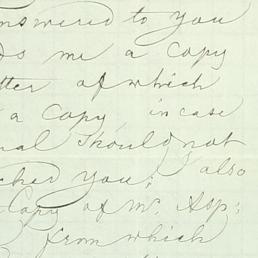 answered to you
me a Copy
of which
a Copy, in case
should not
you; I also
Copy of Mr. Asp:
from which